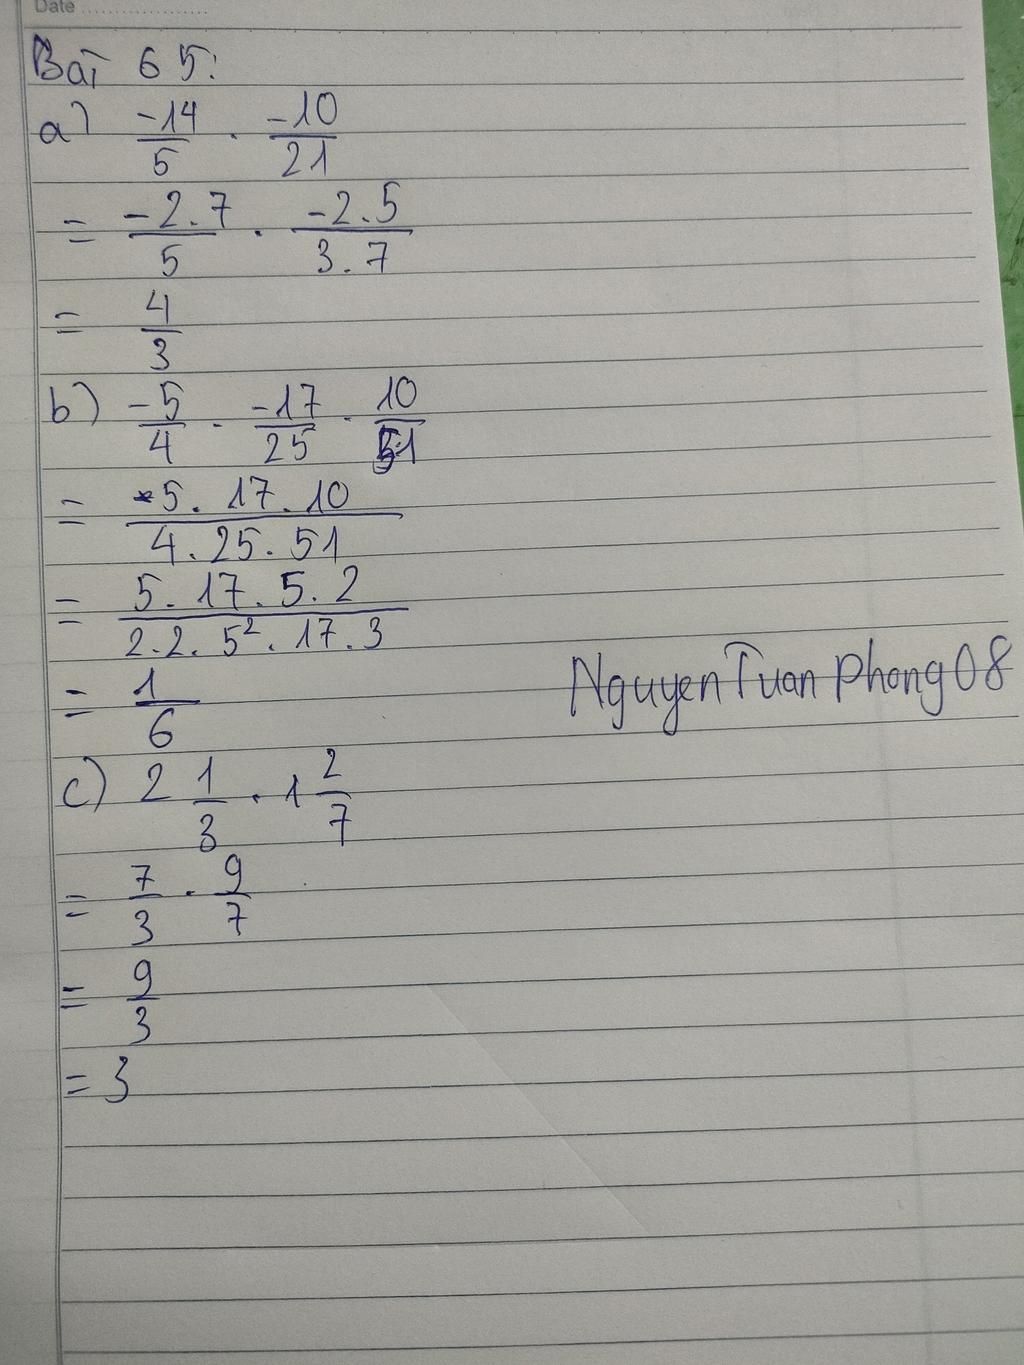 Date ....................
Bài 65:
a) -14/5 . -10/21
= -2.7/5 . -2.5/3.7
= 4/3
b) -5/4 . -17/25 . 10/51
= 5.17.10/4.25.51
= 5.17.5.2/2.2.5².17.3
= 1/6
Nguyen Tuan Phong 08
c) 2 1/3 . 1 2/7
= 7/3 . 9/7
= 9/3
= 3